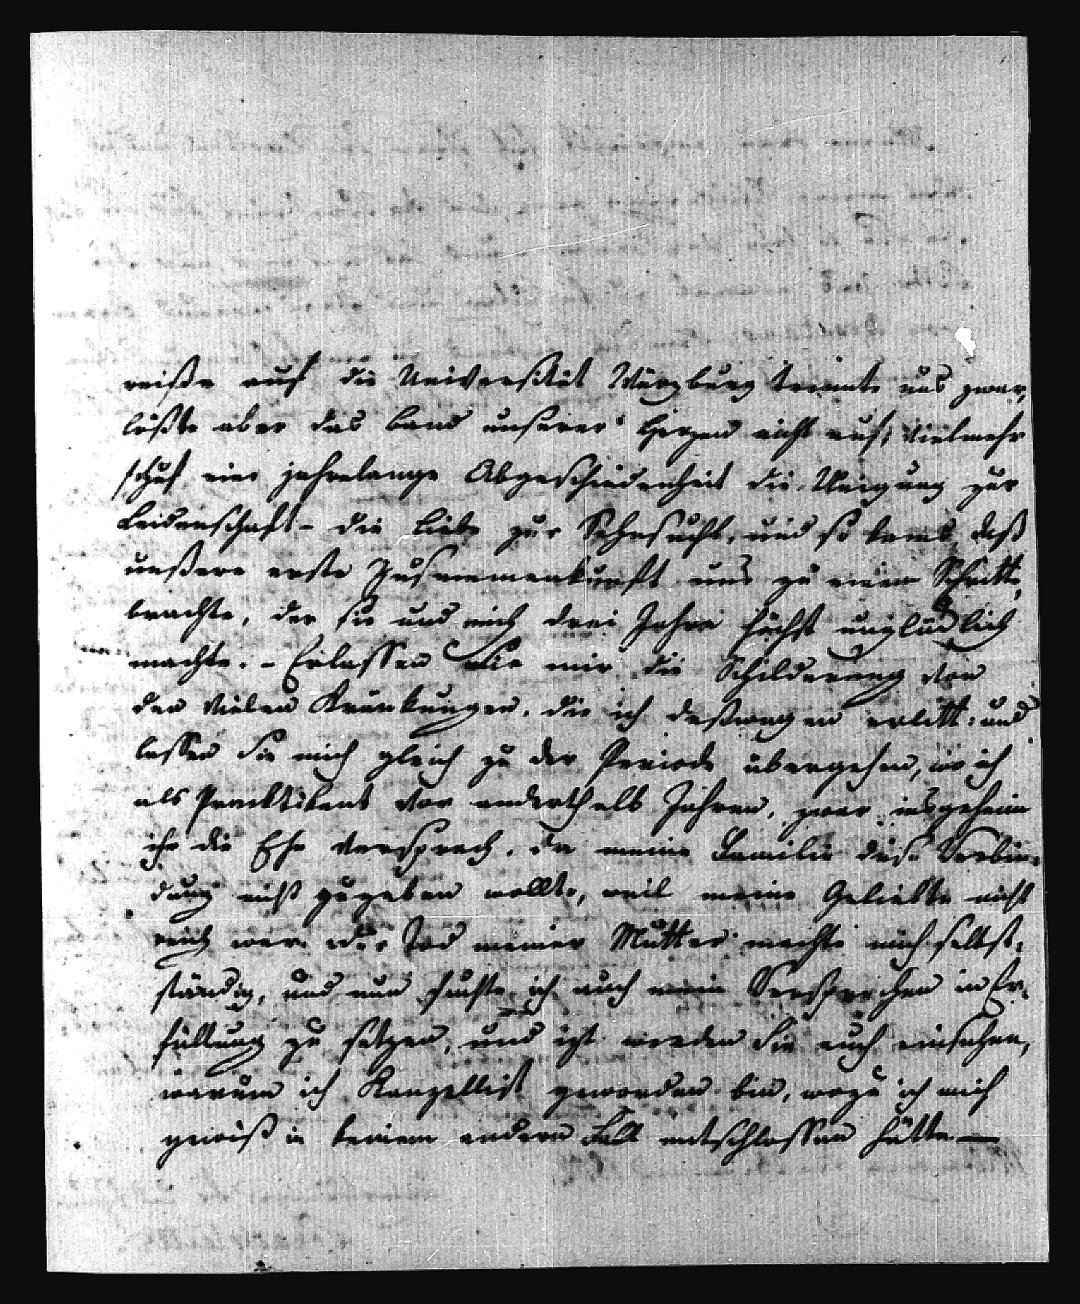 reiße auf die Universität Würzburg trennte uns zwar,
lößte aber das band unserer Herzen nicht auf; vielmehr
schuf eine jahrelange Abgeschiedenheit die Neigung zur
Leidenschaft – die Liebe zur Sehnsucht, und so kams daß
unßere erste Zusammenkunft uns zu einem Schritte
brachte, der sie und mich drei Jahre höchst unglücklich
machte. – Erlassen Sie mir die Schilderung von
den vielen Kränkungen, die ich deßwegen erlitt, und
lassen Sie mich gleich zu der Periode übergehen, wo ich
als Practikant vor anderthalb Jahren, zwar insgeheim
ihr die Ehe versprach, da meine Familie diese Verbin-
dung nicht zugeben wollte, weil meine Geliebte nicht
reich war. Der Tod meiner Mutter machte mich selbst-
ständig, und nun suchte ich auch mein Versprechen in Er-
füllung zu setzen, und izt werden Sie auch einsehen,
warum ich Kanzellist geworden bin, wozu ich mich
gewiß in keinem andern Fall entschlossen hätte —